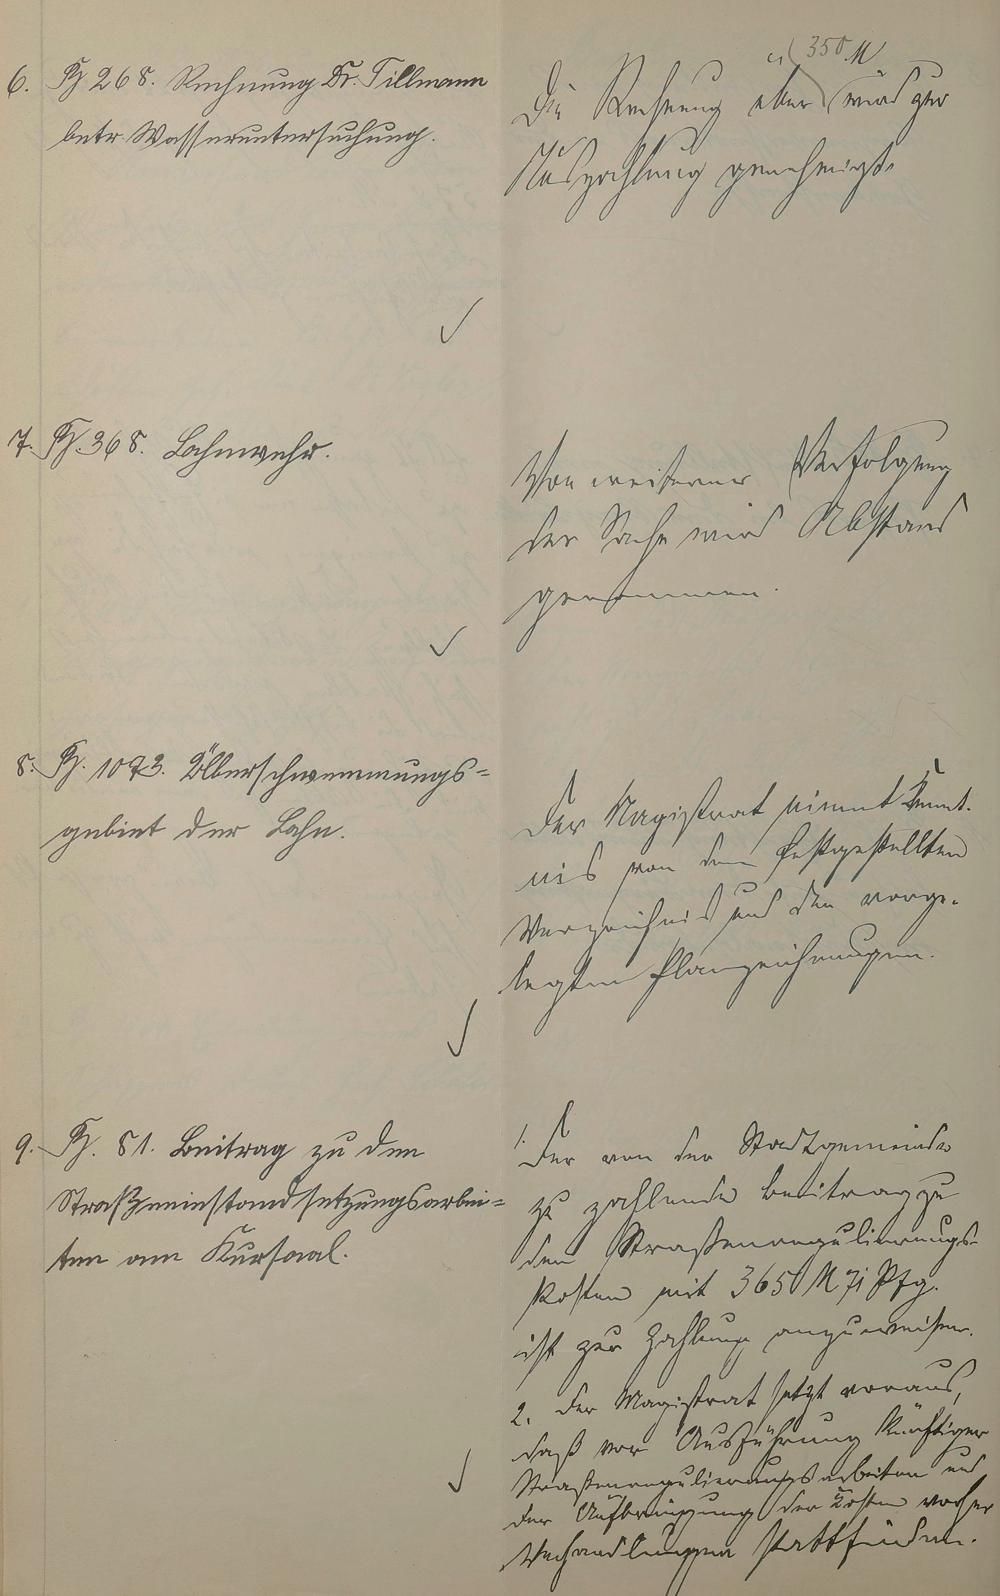 6. Tg 268. Rechnung Dr. Tillmann
betr. Wasseruntersuchung.
350 M
Die Rechnung über wird zur
Auszahlung genehmigt.
7. Tg. 368. Lahnwehr.
Von weiterer Verfolgung
der Sache wird Abstand
genommen.
8. Tg. 1073. Überschwemmungs-
gebiet der Lahn.
Der Magistrat nimmt Kennt-
nis von dem festgestellten
Verzeichnis und den vorge-
legten Planzeichnungen.
9. Tg. 81. Beitrag zu den
Straßeninstandsetzungsarbei-
ten am Kursaal.
1. Der von der Stadtgemeinde
zu zahlende Beitrag zu
den Straßenregulierungs-
kosten mit 3650 M 71 Pfg.
ist zur Zahlung anzuweisen.
2. Der Magistrat setzt voraus,
daß vor Ausführung künftiger
Straßenregulierungsarbeiten und
der Aufbringung der Kosten vorher
Verhandlungen stattfinden.